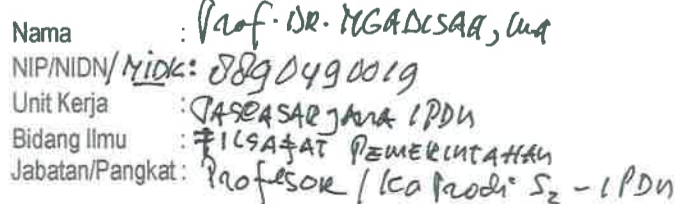 Nama : Prof. DR. NGADISAH, MA
NIP/NIDN/NIDK: 8890490019
Unit Kerja : PASCASARJANA IPDN
Bidang Ilmu : FILSAFAT PEMERINTAHAN
Jabatan/Pangkat : Profesor / Ka Prodi S2 - IPDN